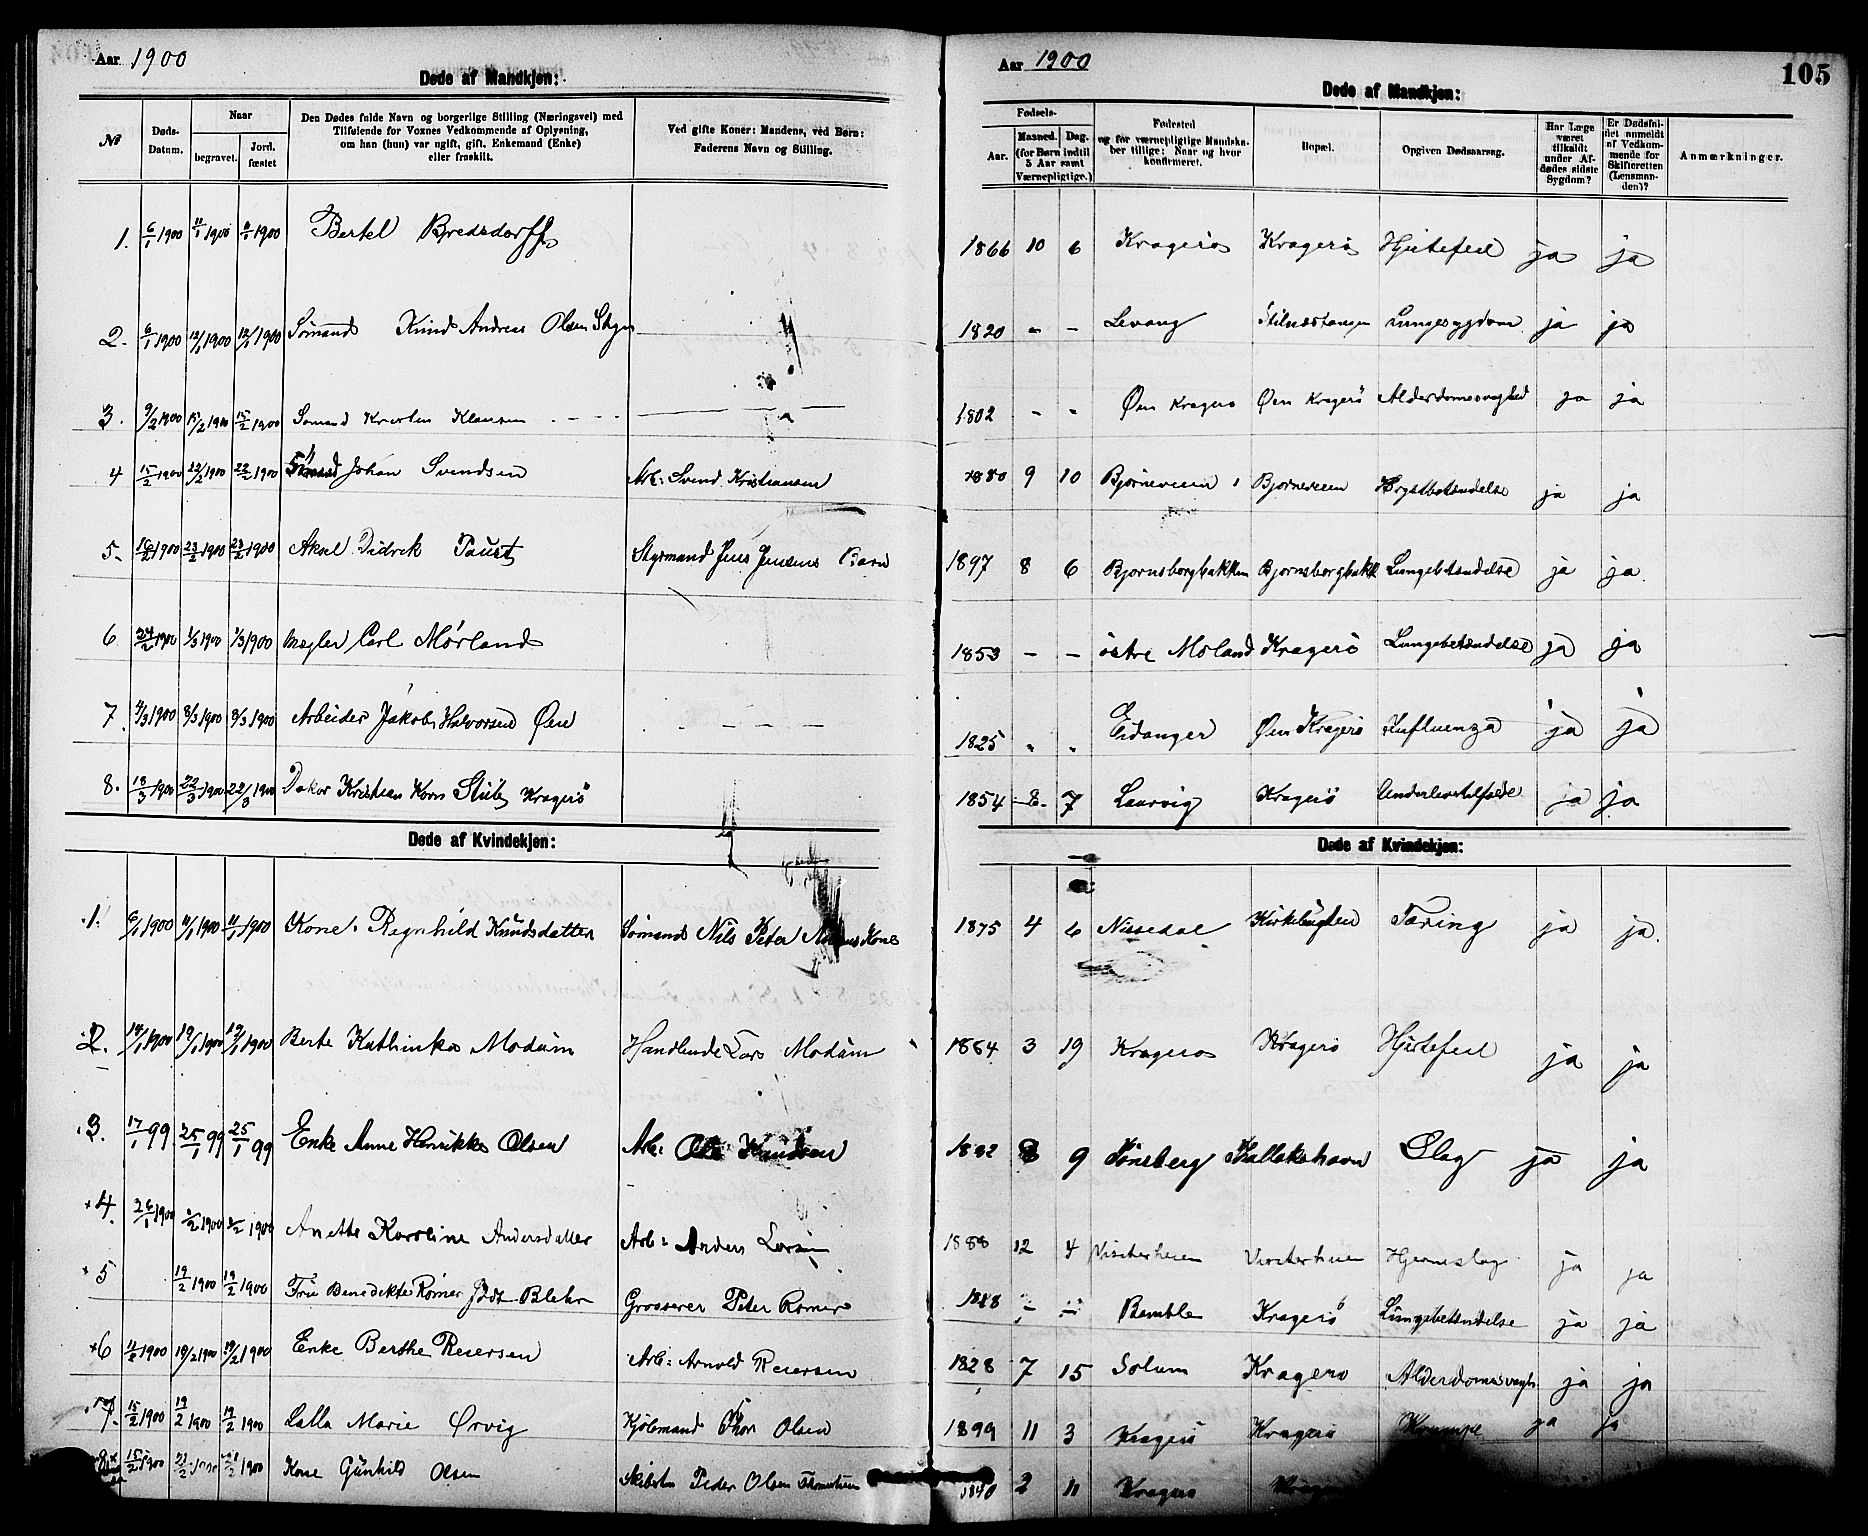 Aar 1900
Døde af Mandkjøn:
№
Døds-Datum.
Naar
begravet.
Jord. fæstet
Den Dødes fulde Navn og borgerlige Stilling (Næringsvei) med
Tilføiende for Voxnes Vedkommende af Oplysning,
om han (hun) var ugift, gift, Enkemand (Enke)
eller fraskilt.
Ved gifte Koner: Mandens, ved Børn:
Faderens Navn og Stilling.
1. 6/1 1900 11/1 1900 11/1 1900 Bertel Bredsdorff
2. 6/1 1900 12/1 1900 12/1 1900 Sömand Knud Andreas Olsen
3. 9/2 1900 15/2 1900 15/2 1900 Sömand Klausen
4 15/2 1900 22/2 1900 22/2 1900 Johan Svendsen Arb: Svend Kristiansen
5. 16/2 1900 23/2 1900 23/2 1900 Aksel Didrik Faust Styrmand Jens Jensens Barn
6 24/2 1900 1/3 1900 1/3 1900 Megler Carl Mørland
7. 4/3 1900 8/3 1900 8/3 1900 Arbeider Jakob Halvorsen Øen
8. 18/3 1900 22/3 1900 22/3 1900 Kristian Korn Kragerö
Døde af Kvindekjøn:
1. 6/1 1900 11/1 1900 11/1 1900 Kone Regnhild Knudsdatter Sømand Nils Peter Kone
2. 14/1 1900 19/1 1900 19/1 1900 Berte Kathinka Modum Handlende Lars Modum
3. 17/1 99 25/1 99 25/1 99 Enke Anne Henrikke Olsen Arb: Ole Knudsen
4. 26/1 1900 2/2 1900 2/2 1900 Anette Karoline Andersdatter Arb: Anders Larsen
5 19/2 1900 19/2 1900 Fru Benedikte Rømer født Blehr Grosserer Peter Rømer
6 1900 19/2 1900 19/2 1900 Enke Berthe Reiersen Arb: Arnold Reiersen
7. 15/2 1900 19/2 1900 19/2 1900 Lalla Marie Ørvig Kjölsmand Thor Olsen
8 15/2 1900 21/2 1900 21/2 1900 Kone Gunhild Olsen Peder Olsen
Aar 1900
105
Døde af Mandkjøn:
Fødsels-
Aar.
Maaned. Dag.
(for Børn indtil
5 Aar samt
Værnepligtige.)
Fødested
og for værnepligtige Mandska-
ber tillige: Naar og hvor
konfirmeret.
Bopæl.
Opgiven Dødsaarsag.
Har Læge
været
tilkaldt
under Af-
dødes sidste
Sygdom?
Er Dødsfal-
det anmeldt
af Vedkom-
mende for
Skifteretten
(Lensman-
den)?
Anmærkninger.
1866 10 6 Kragerö Kragerö Hjertefeil ja ja
1820 - - Levang Lungesygdom ja ja
1802 - - Øen Kragerö Øen Kragerö Alderdomssvaghed ja ja
1880 9 10 Bjørneveien Bjørneveien Brystbetændelse ja ja
1897 8 6 Bjornsborgbakken Bjornsborgbakk Lungebetændelse ja ja
1853 - - östre Moland Kragerö Lungebetændelse ja ja
1825 " " Eidanger Øen Kragerö Influenza ja ja
1854 8. 7 Laurvig Kragerö Underlivstilfælde ja ja
Døde af Kvindekjøn:
1875 4 6 Nissedal Kirkebugten Tæring ja ja.
1864 3 19 Kragerö Kragerö Hjertefeil ja ja
9 Tönsberg Kallakshavn Slag ja ja
1888 12 4 Hjerneslag ja ja
- - Bamble Kragerö Lungebetændelse ja ja
1828 7 15 Solum Kragerö Alderdomssvagh ja ja
1899 11 3 Kragerö Kragerö Krampe ja ja
1840 2 11 Kragerö